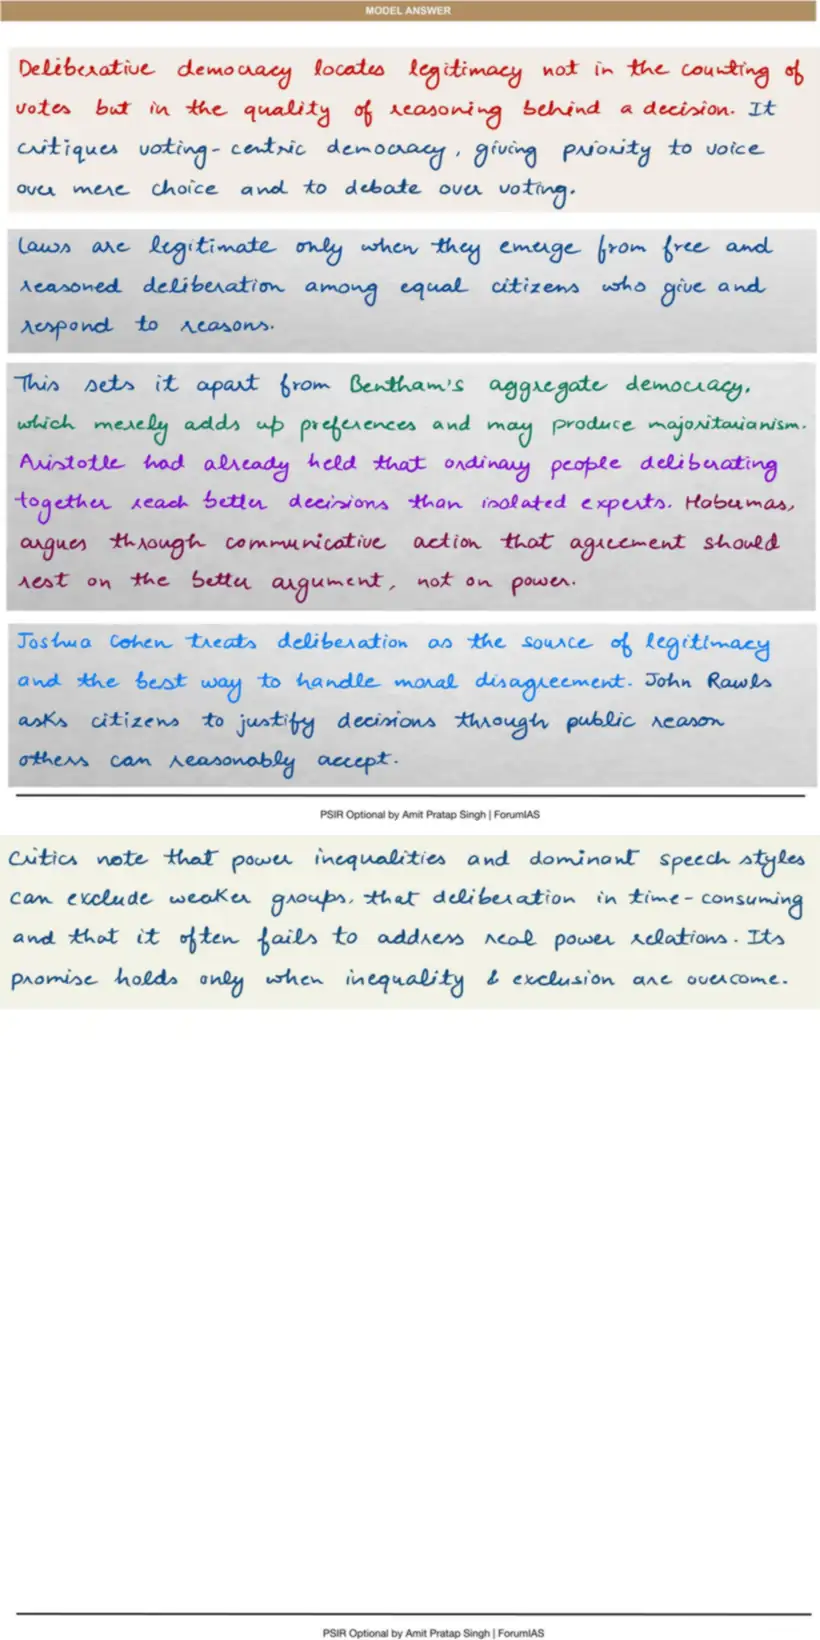 MODEL ANSWER
Deliberative democracy locates legitimacy not in the counting of
votes but in the quality of reasoning behind a decision. It
critiques voting-centric democracy, giving priority to voice
over mere choice and to debate over voting.
Laws are legitimate only when they emerge from free and
reasoned deliberation among equal citizens who give and
respond to reasons.
This sets it apart from Bentham's aggregate democracy,
which merely adds up preferences and may produce majoritarianism.
Aristotle had already held that ordinary people deliberating
together reach better decisions than isolated experts. Habermas,
argues through communicative action that agreement should
rest on the better argument, not on power.
Joshua Cohen treats deliberation as the source of legitimacy
and the best way to handle moral disagreement. John Rawls
asks citizens to justify decisions through public reason
others can reasonably accept.
PSIR Optional by Amit Pratap Singh | ForumIAS
Critics note that power inequalities and dominant speech styles
can exclude weaker groups, that deliberation in time-consuming
and that it often fails to address real power relations. Its
promise holds only when inequality & exclusion are overcome.
PSIR Optional by Amit Pratap Singh | ForumIAS